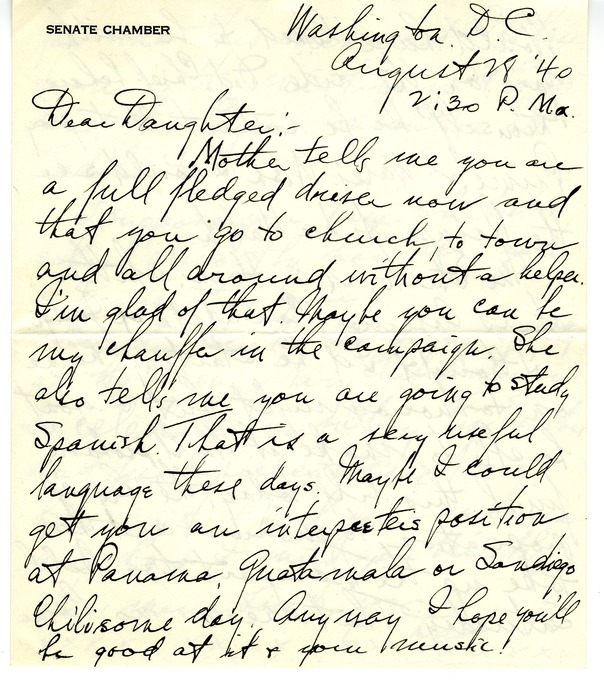 SENATE CHAMBER
Washington. D.C.
August 28 '40
2:30 P. Ma.
Dear Daughter:-
Mother tells me you are
a full fledged driver now and
that you go to church, to town
and all around without a helper.
I'm glad of that. Maybe you can be
my chauffer in the campaign. She
also tells me you are going to study
Spanish. That is a very useful
language these days. Maybe I could
get you an interpeeters position
at Panama, Guatamala or Sandiego
Chili some day. Anyway I hope you'll
be good at it & your music!